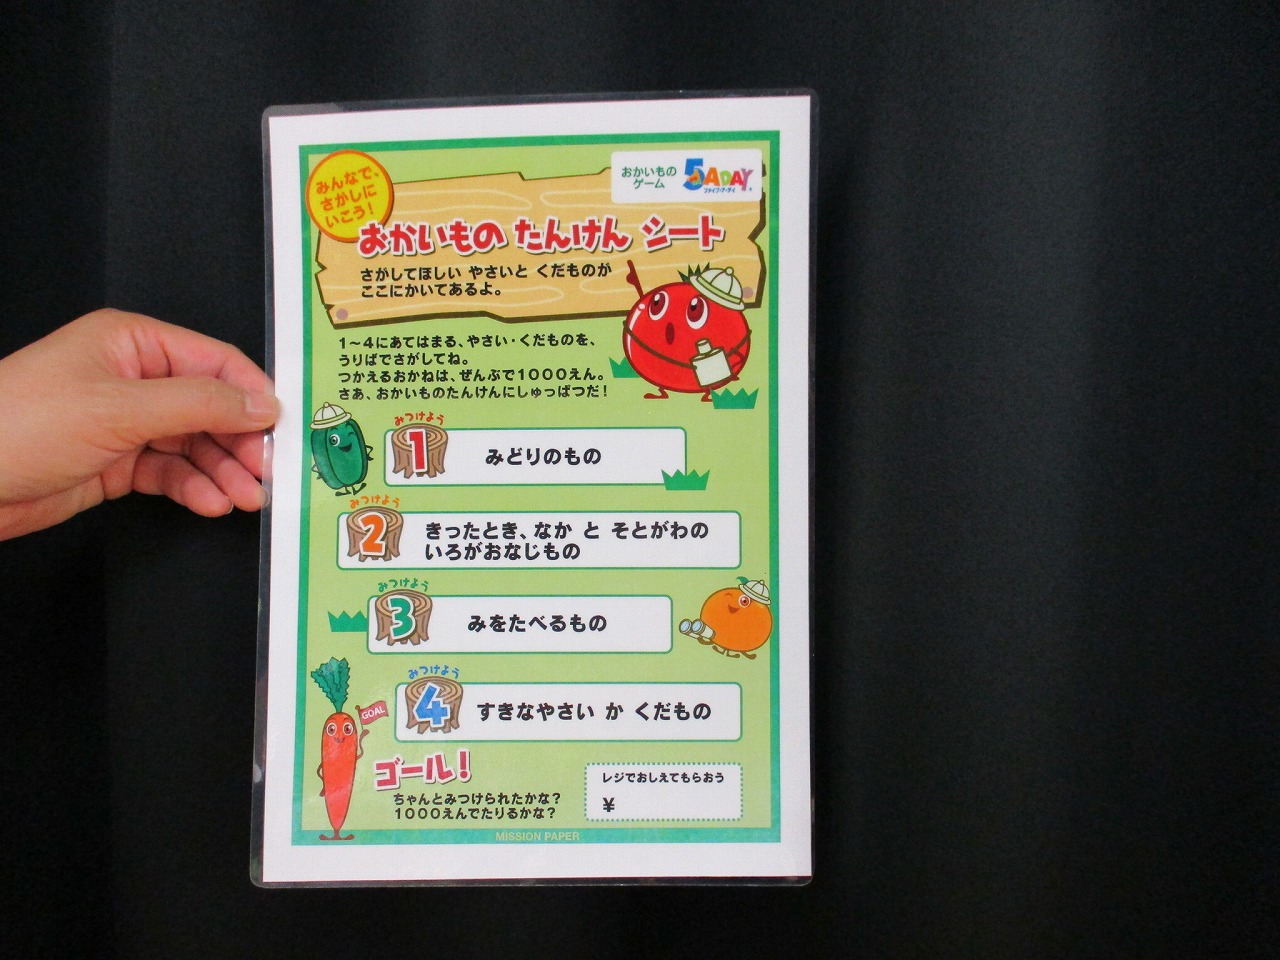 みんなで、
さがしに
いこう！
おかいもの
ゲーム
5 A DAY
ファイブ・ア・デイ
おかいもの たんけん シート
さがしてほしい やさいと くだものが
ここにかいてあるよ。
1～4にあてはまる、やさい・くだものを、
うりばでさがしてね。
つかえるおかねは、ぜんぶで1000えん。
さあ、おかいものたんけんにしゅっぱつだ！
みつけよう
1
みどりのもの
みつけよう
2
きったとき、なか と そとがわの
いろがおなじもの
みつけよう
3
みをたべるもの
みつけよう
4
すきなやさい か くだもの
GOAL
ゴール！
ちゃんとみつけられたかな？
1000えんでたりるかな？
レジでおしえてもらおう
¥
MISSION PAPER